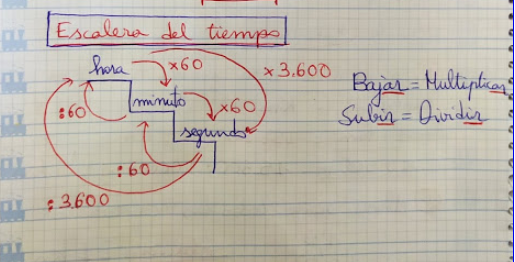 Escalera del tiempo
hora
×60
×3.600
minuto
:60
×60
segundo
:60
:3.600
Bajar = Multiplicar
Subir = Dividir